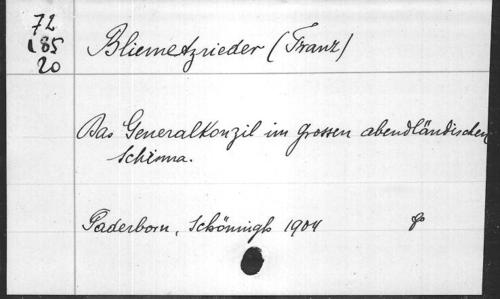 72
185
20
Bliemetzrieder (Franz)
Das Generalkonzil im grossen abendländischen
Schisma.
Paderborn, Schöningh 1904